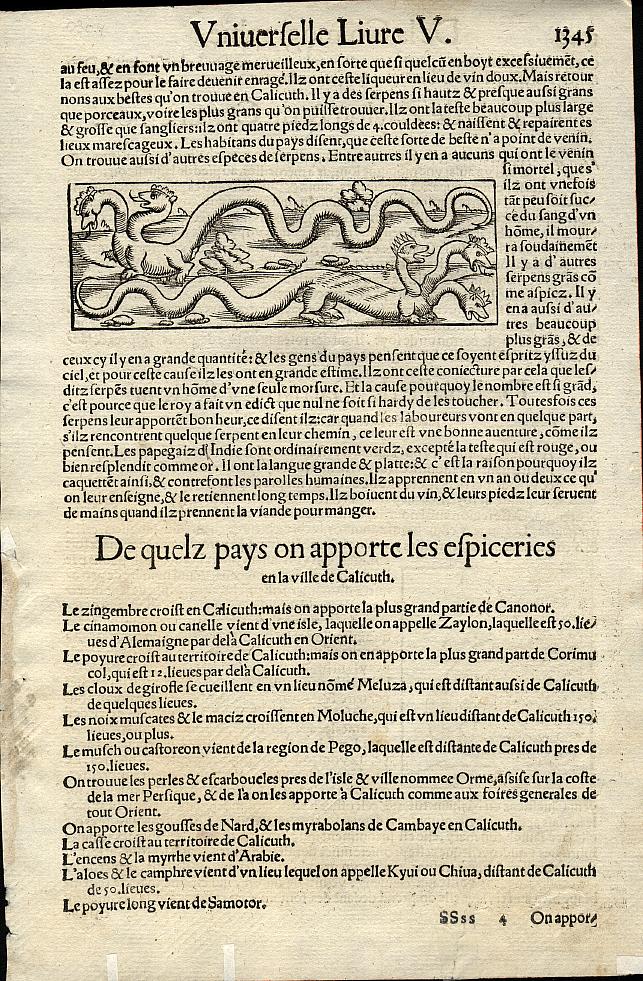 Vniuerſelle Liure V. 1345
au feu,& en font vn breuuage merueilleux,en ſorte que ſi quelcũ en boyt exceſsiuemẽt, ce
la eſt aſſez pour le faire deuenir enragé.Ilz ont ceſte liqueur en lieu de vin doux.Mais retour
nons aux beſtes qu'on trouue en Calicuth. Il y a des ſerpens ſi hautz & preſque auſsi grans
que porceaux,voire les plus grans qu'on puiſſe trouuer.Ilz ont la teſte beaucoup plus large
& groſſe que ſangliers:ilz ont quatre piedz longs de 4.couldées: & naiſſent & repairent es
lieux mareſcageux. Les habitans du pays diſent,que ceſte ſorte de beſte n'a point de venin.
On trouue auſsi d'autres eſpeces de ſerpens. Entre autres il y en a aucuns qui ont le venin
ſi mortel, que s'
ilz ont vnefois
tãt peu ſoit ſuc⸗
cé du ſang d'vn
hõme, il mour⸗
ra ſoudainemẽt
Il y a d' autres
ſerpens grãs cõ
me aſpicz. Il y
en a auſsi d'au⸗
tres beaucoup
plus grãs, & de
ceux cy il y en a grande quantité: & les gens du pays penſent que ce ſoyent eſpritz yſſuz du
ciel,et pour ceſte cauſe ilz les ont en grande eſtime.Ilz ont ceſte coniecture par cela que leſ⸗
ditz ſerpẽs tuent vn hõme d'vne ſeule morſure. Et la cauſe pourquoy le nombre eſt ſi grãd,
c'eſt pource que le roy a fait vn edict que nul ne ſoit ſi hardy de les toucher. Toutesfois ces
ſerpens leur apportẽt bon heur,ce diſent ilz:car quand les laboureurs vont en quelque part,
s'ilz rencontrent quelque ſerpent en leur chemin, ce leur eſt vne bonne auenture, cõme ilz
penſent. Les papegaiz d' Indie ſont ordinairement verdz, excepté la teſte qui eſt rouge, ou
bien reſplendit comme or. Il ont la langue grande & platte: & c' eſt la raiſon pourquoy ilz
caquettẽt ainſi,& contrefont les parolles humaines.Ilz apprennent en vn an ou deux ce qu'
on leur enſeigne,& le retiennent long temps.Ilz boiuent du vin,& leurs piedz leur ſeruent
de mains quand ilz prennent la viande pour manger.
De quelz pays on apporte les eſpiceries
en la ville de Calicuth.
Le zingembre croiſt en Calicuth:mais on apporte la plus grand partie de Canonor.
Le cinamomon ou canelle vient d'vne isle, laquelle on appelle Zaylon,laquelle eſt 50.lie⸗
ues d'Alemaigne par delà Calicuth en Orient.
Le poyure croiſt au territoire de Calicuth:mais on en apporte la plus grand part de Corimu
col,qui eſt 12.lieues par delà Calicuth.
Les cloux de girofle ſe cueillent en vn lieu nõmé Meluza, qui eſt diſtant auſsi de Calicuth
de quelques lieues.
Les noix muſcates & le maciz croiſſent en Moluche,qui eſt vn lieu diſtant de Calicuth 150.
lieues,ou plus.
Le muſch ou caſtoreon vient de la region de Pego, laquelle eſt diſtante de Calicuth pres de
150.lieues.
On trouue les perles & eſcarboucles pres de l'isle & ville nommee Orme,aſsiſe ſur la coſte
de la mer Perſique, & de là on les apporte à Calicuth comme aux foires generales de
tout Orient.
On apporte les gouſſes de Nard,& les myrabolans de Cambaye en Calicuth.
La caſſe croiſt au territoire de Calicuth.
L'encens & la myrrhe vient d'Arabie.
L'aloes & le camphre vient d'vn lieu lequel on appelle Kyui ou Chiua, diſtant de Calicuth
de 50.lieues.
Le poyure long vient de Samotor.
SSss 4 On appor⸗